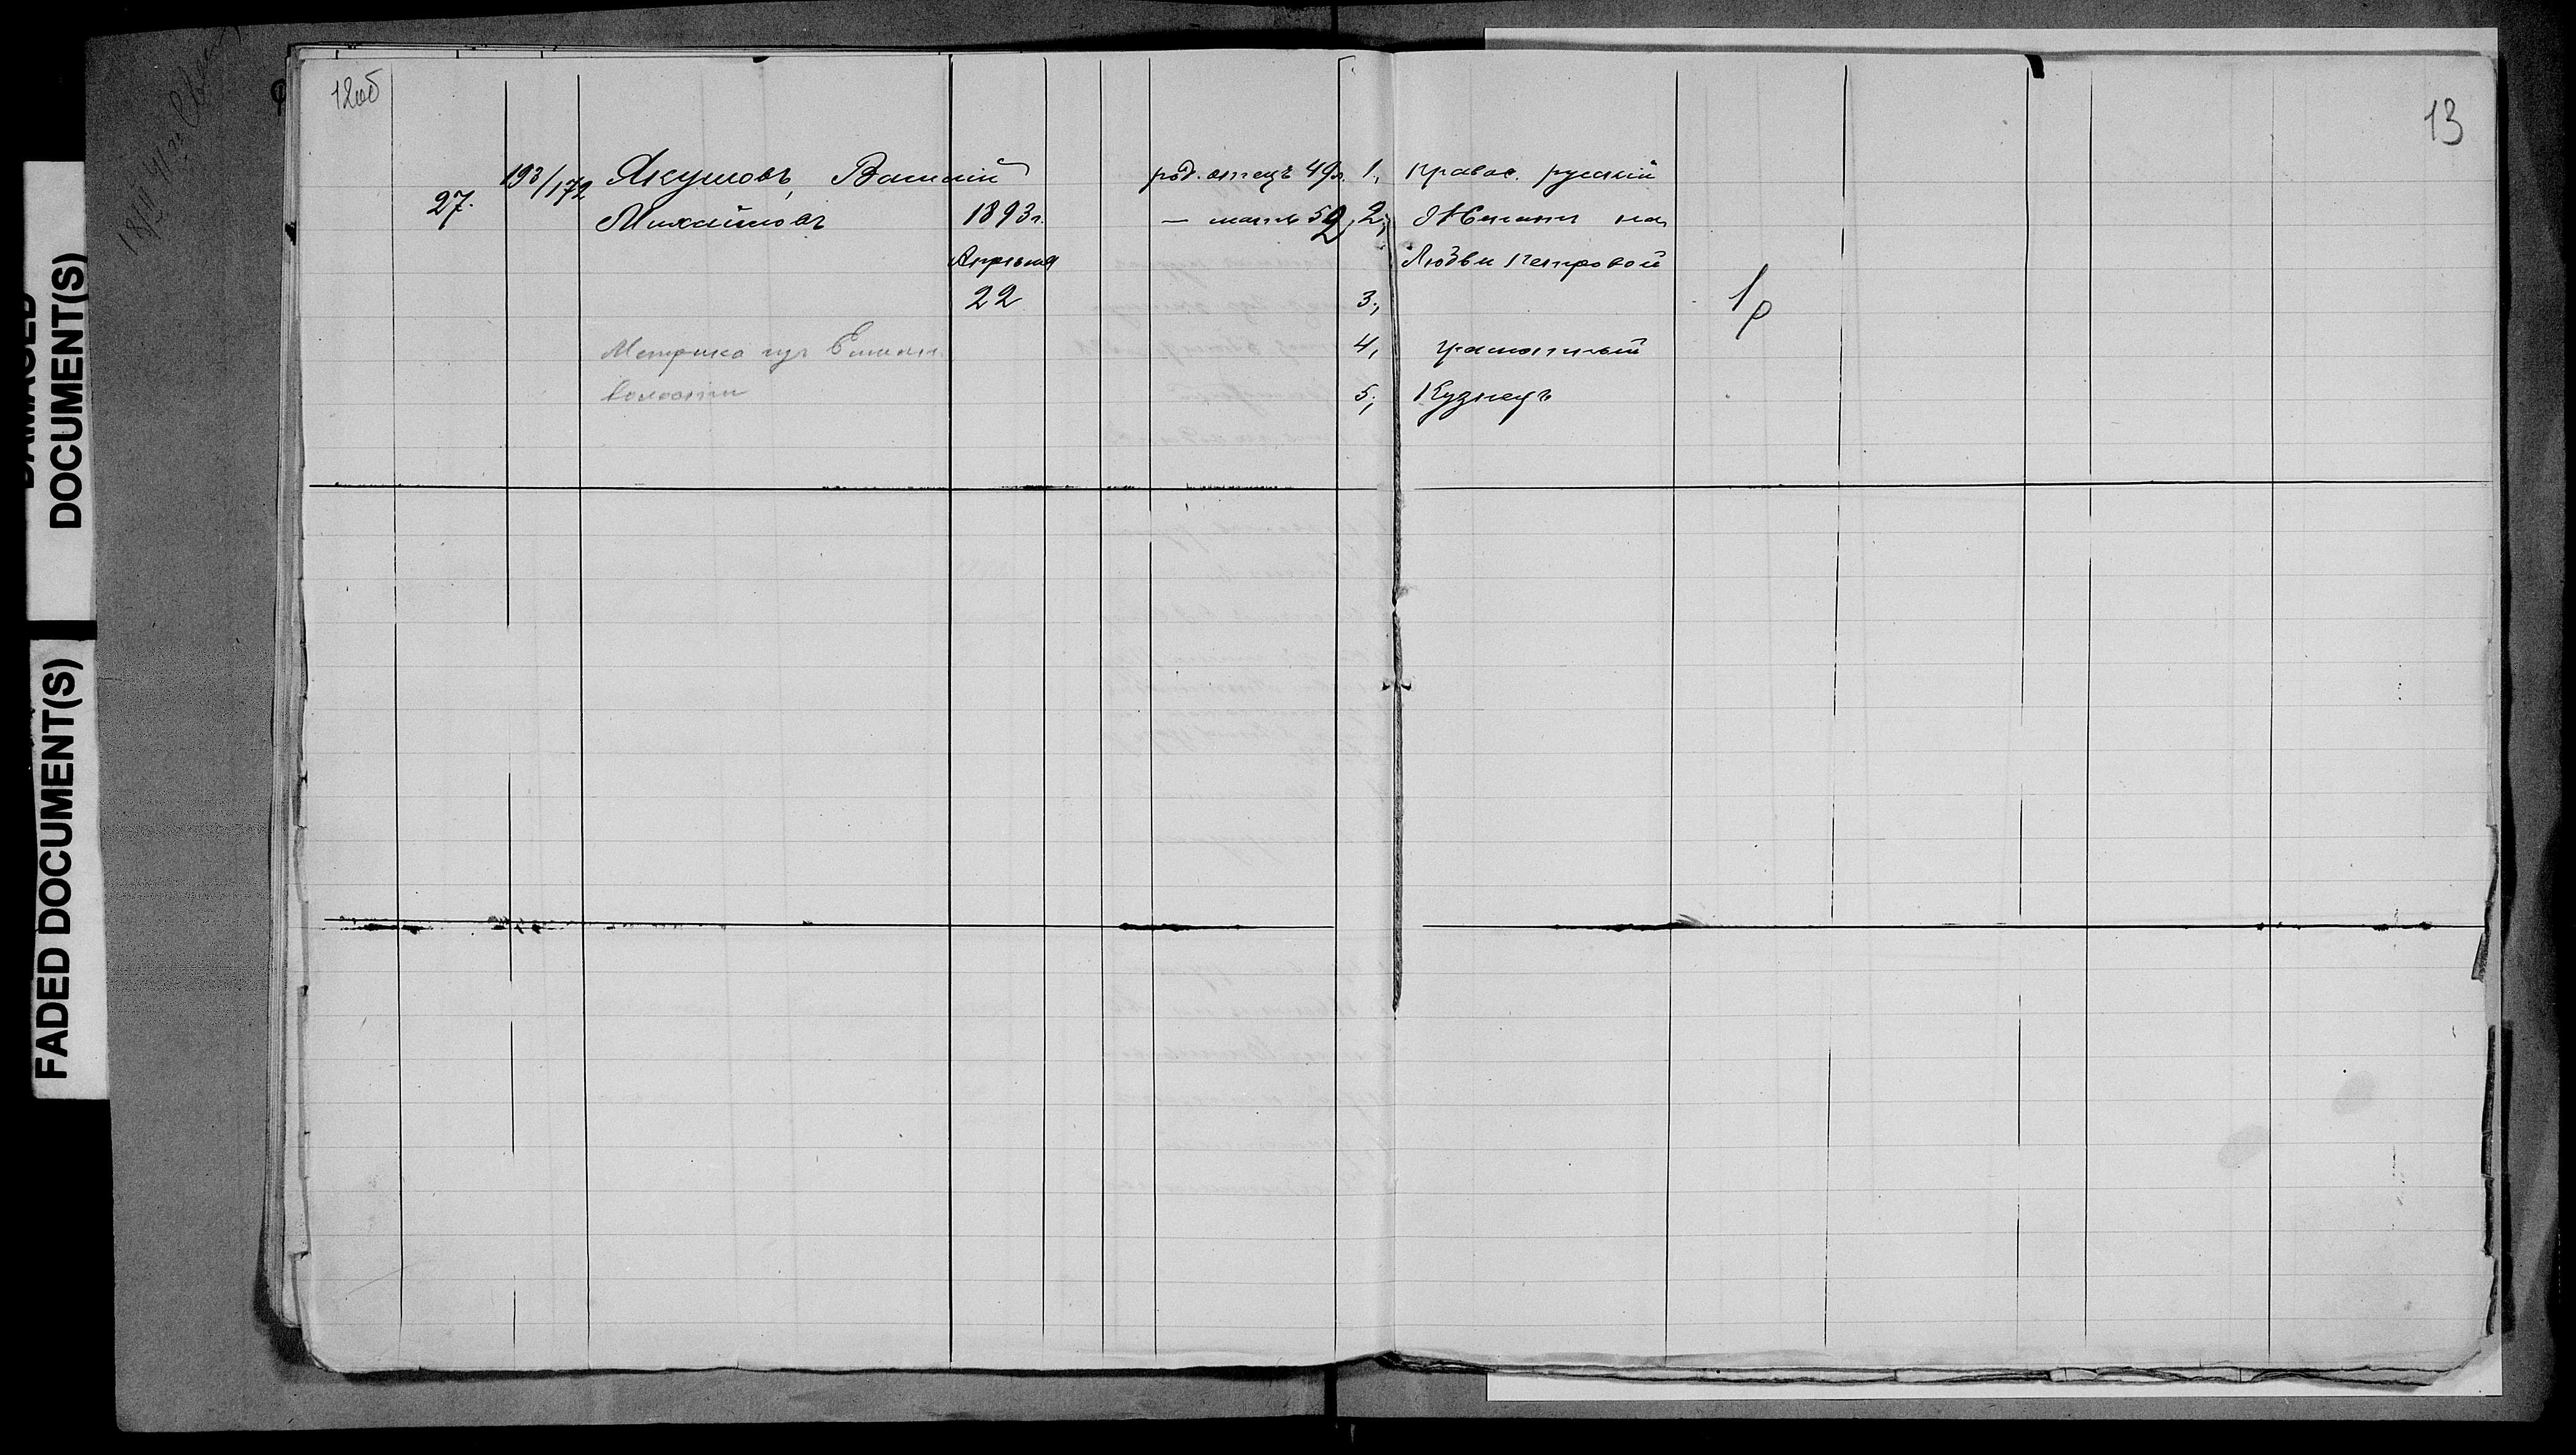 12об
13
27. 193/172 Якушовъ, Василій род. отецъ 49 л. 1, правос. русскій
Михайловъ 1893 г. — мать 52, 2, Женатъ на
Апрѣля Любви Петровой
22 3, 1р
Метрика изъ 4, грамотный
волости 5, Кузнецъ
DAMAGED
DOCUMENT(S)
FADED DOCUMENT(S)